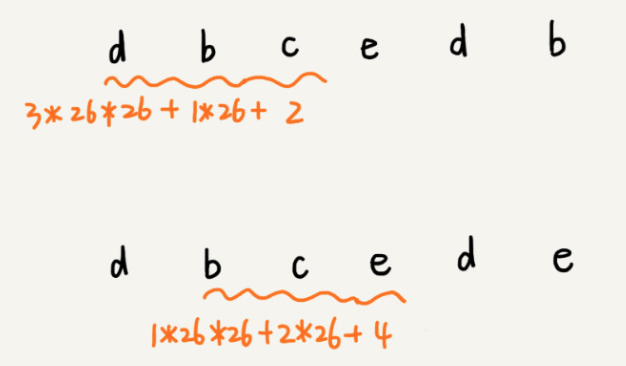 d b c e d b
3*26*26 + 1*26+ 2
d b c e d e
1*26*26+2*26+4